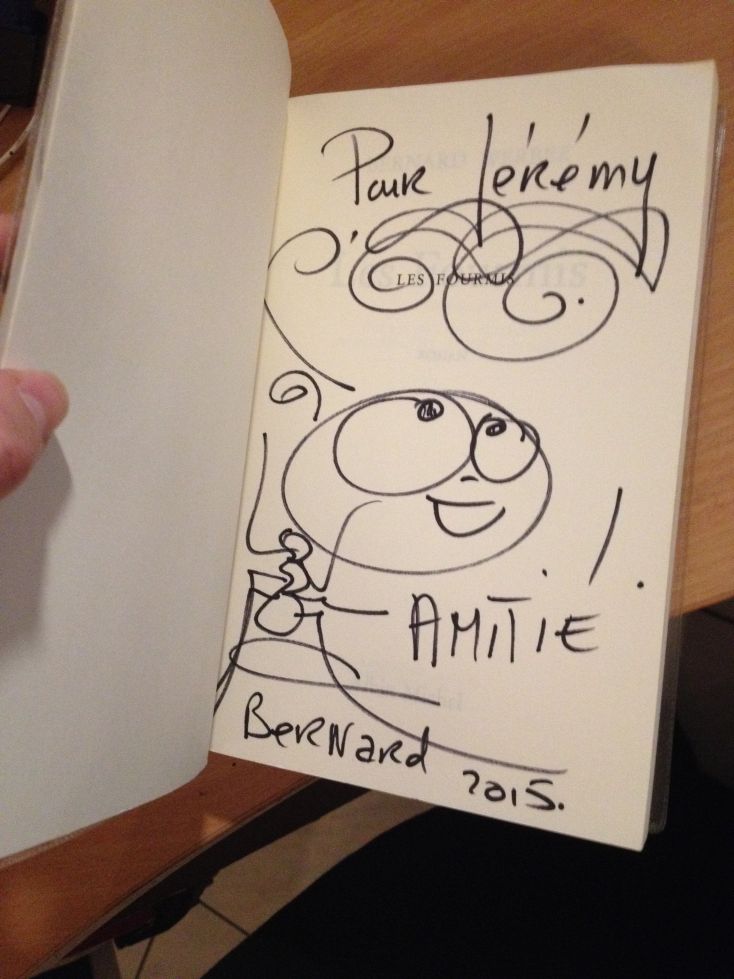 Pour Jérémy
LES FOURMIS
AMITIÉ
Bernard 2015.